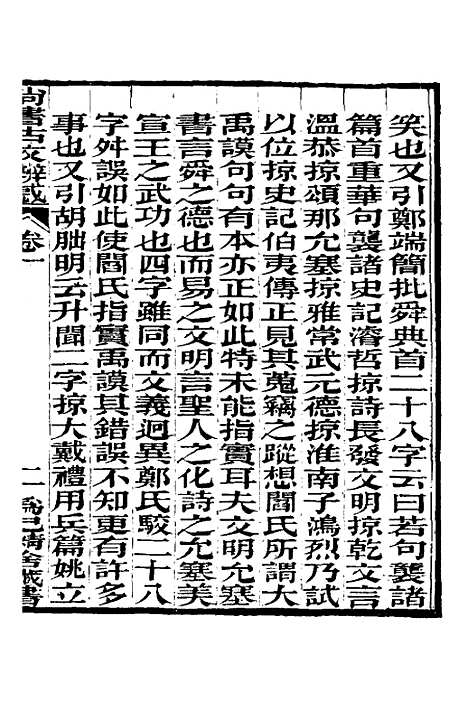 矣也又引鄭端簡批舜典首二十八字云曰若句襲諸
篇首重華句襲諸史記濬哲掠詩長發文明掠乾文言
溫恭掠頌那允塞掠雅常武元德掠淮南子鴻烈乃試
以位掠史記伯夷傳正見其蒐竊之蹤想閻氏所謂大
禹謨句句有本亦正如此特未能指實耳夫文明允塞
書言舜之德也而易之文明言聖人之化詩之允塞美
宣王之武功也四字雖同而文義迥異鄭氏駁二十八
字舛誤如此使閻氏指實禹謨其錯誤不知更有許多
事也又引胡朏明云升聞二字掠大戴禮用兵篇姚立
尚書古文辨惑 卷一 二 爲己精舍藏書